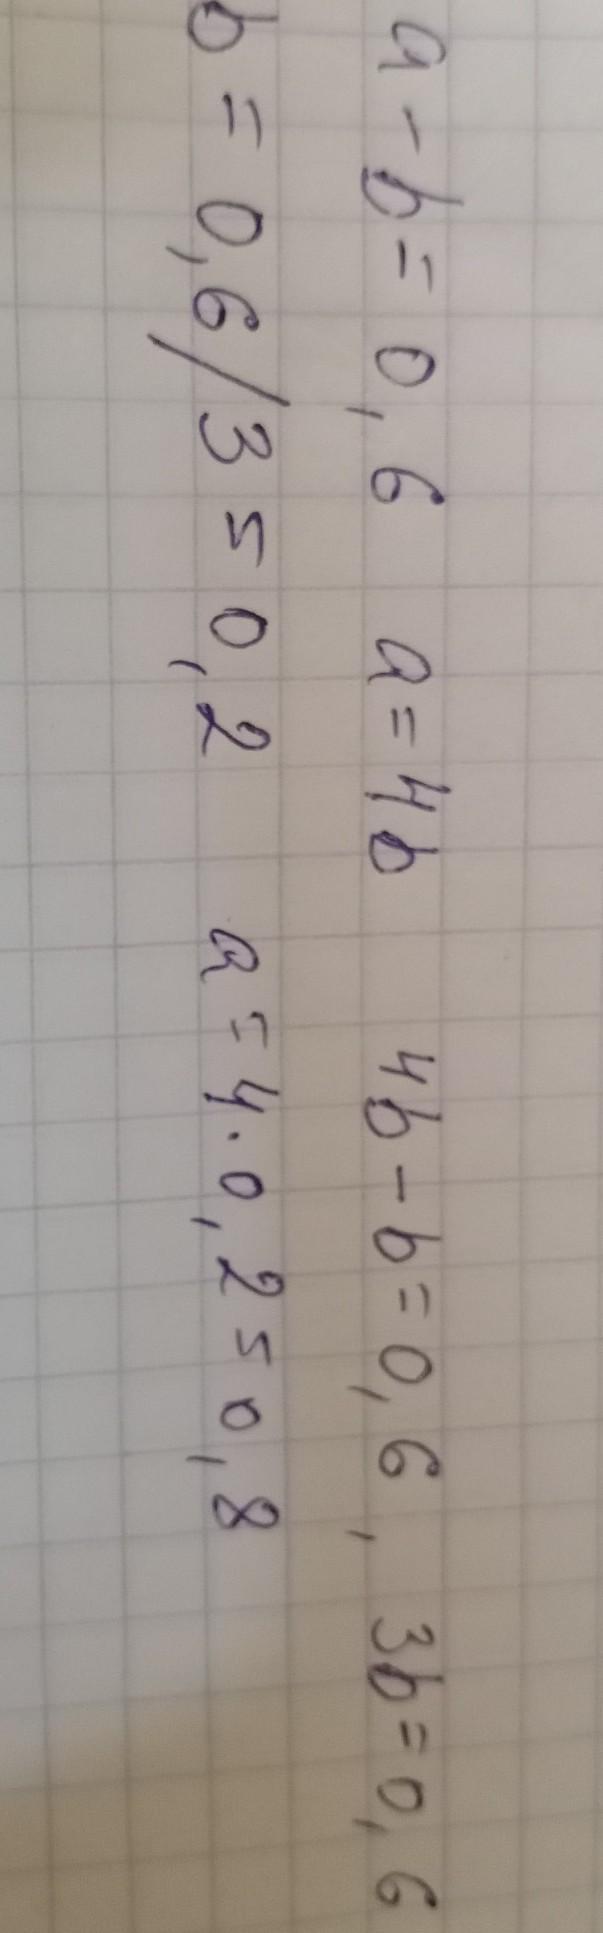 a - b = 0,6 a = 4b 4b - b = 0,6 , 3b = 0,6
b = 0,6/3 = 0,2 a = 4·0,2 = 0,8